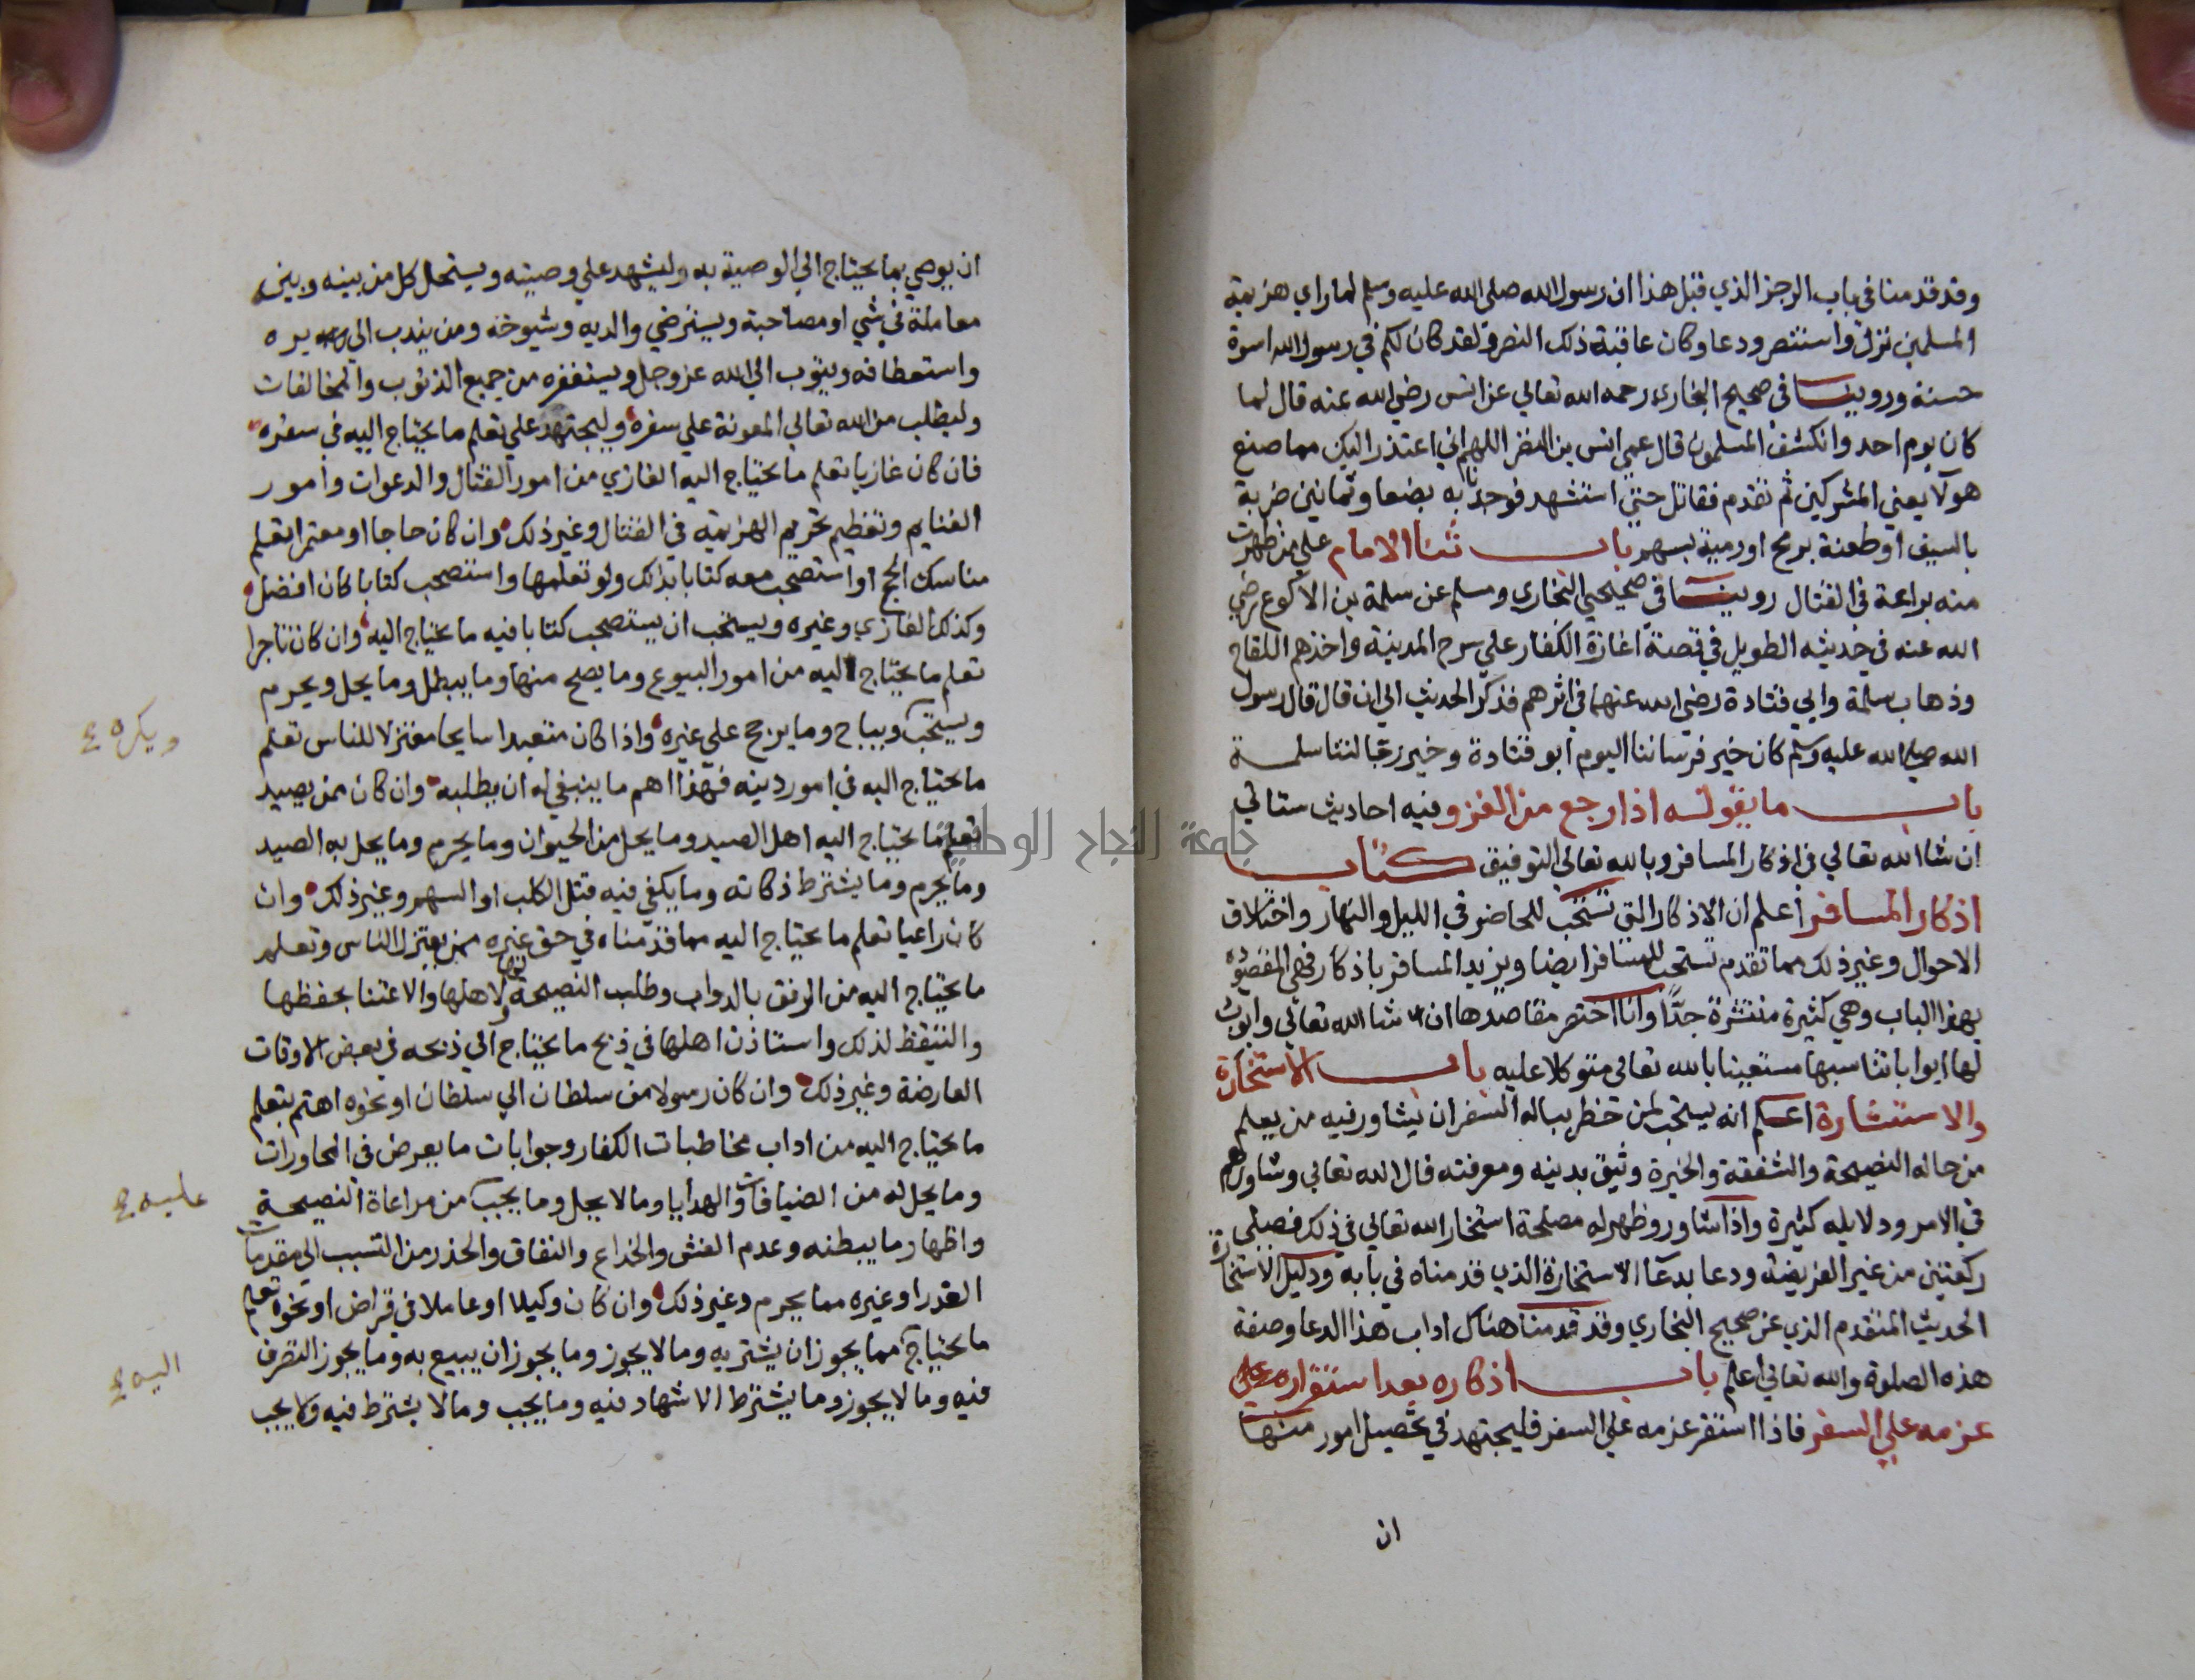 وقد قدمنا في باب الرجز الذي قبل هذا ان رسول الله صلى الله عليه وسلم لما راي هزيمة
المسلمين نزل واستنصر ودعا وكان عاقبة ذلك النصر ولقد كان لكم في رسول الله اسوة
حسنة وروينا في صحيح البخاري رحمه الله تعالي عن انس رضي الله عنه قال لما
كان يوم احد وانكشف المسلمون قال عمي انس بن النضر اللهم اني اعتذر اليك مما صنع
هولا يعني المشركين ثم تقدم فقاتل حتي استشهد فوجدنا به بضعا وثمانين ضربة
بالسيف او طعنة برمح او رمية بسهم باب ثنا الامام علي من ظهرت
منه براعة في القتال روينا في صحيحي البخاري ومسلم عن سلمة بن الاكوع رضي
الله عنه في حديثه الطويل في قصة اغارة الكفار علي سرح المدينة واخذهم اللقاح
وذهاب سلمة وابي قتادة رضي الله عنهما في اثرهم فذكر الحديث الي ان قال قال رسول
الله صلى الله عليه وسلم كان خير فرساننا اليوم ابو قتادة وخير رجالتنا سلمة
باب ما يقوله اذا رجع من الغزو وفيه احاديث ستاتي
ان شا الله تعالي في اذكار المسافر وبالله تعالي التوفيق كتاب
اذكار المسافر اعلم ان الاذكار التي تستحب للحاضر في الليل والنهار واختلاف
الاحوال وغير ذلك مما تقدم تستحب للمسافر ايضا ويزيد المسافر باذكار فهي المقصودة
بهذا الباب وهي كثيرة منتشرة جدا وانا اختصر مقاصدها ان شا الله تعالي وابوب
لها ابوابا تناسبها مستعينا بالله تعالي متوكلا عليه باب الاستخارة
والاستشارة اعلم انه يستحب لمن خطر بباله السفر ان يشاور فيه من يعلم
من حاله النصيحة والشفقة والخبرة وثيق بدينه ومعرفته قال الله تعالي وشاورهم
في الامر ودلايله كثيرة واذا شاور وظهر له مصلحة استخار الله تعالي في ذلك فصلي
ركعتين من غير الفريضة ودعا بدعا الاستخارة الذي قدمناه في بابه ودليل الاستخارة
الحديث المتقدم الذي عن صحيح البخاري وقد قدمنا هناك اداب هذا الدعا وصفة
هذه الصلوة والله تعالي اعلم باب اذكاره بعد استقراره علي
عزمه علي السفر فاذا استقر عزمه علي السفر فليجتهد في تحصيل امور منها
ان
ان يوصي بما يحتاج الي الوصية به وليشهد علي وصيته ويستحل كل من بينه وبينه
معاملة في شي او مصاحبة ويسترضي والديه وشيوخه ومن يندب الي بره
واستعطافه ويتوب الي الله عز وجل ويستغفره من جميع الذنوب والمخالفات
وليطلب من الله تعالي المعونة علي سفره وليجتهد علي تعلم ما يحتاج اليه في سفره
فان كان غازيا تعلم ما يحتاج اليه الغازي من امور القتال والدعوات وامور
الغنايم وتعظيم تحريم الهزيمة في القتال وغير ذلك وان كان حاجا او معتمرا تعلم
مناسك الحج او استصحب معه كتابا بذلك ولو تعلمها واستصحب كتابا كان افضل
وكذلك الغازي وغيره ويستحب ان يستصحب كتابا فيه ما يحتاج اليه وان كان تاجرا
تعلم ما يحتاج اليه من امور البيوع وما يصح منها وما يبطل وما يحل ويحرم
ويستحب ويباح وما يرجح علي غيره واذا كان متعبدا سايحا معتزلا للناس تعلم
ويكره ع
ما يحتاج اليه في امور دينه فهذا اهم ما ينبغي له ان يطلبه وان كان ممن يصيد
تعلم ما يحتاج اليه اهل الصيد وما يحل من الحيوان وما يحرم وما يحل به الصيد
وما يحرم وما يشترط ذكاته وما يكفي فيه قتل الكلب او السهم وغير ذلك وان
كان راعيا تعلم ما يحتاج اليه مما قدمناه في حق غيره ممن يعتزل الناس وتعلم
ما يحتاج اليه من الرفق بالدواب وطلب النصيحة لها ولاهلها والاعتنا بحفظها
والتيقظ لذلك واستاذن اهلها في ذبح ما يحتاج الي ذبحه في بعض الاوقات
العارضة وغير ذلك وان كان رسولا من سلطان الي سلطان او نحوه اهتم بتعلم
ما يحتاج اليه من اداب مخاطبات الكفار وجوابات ما يعرض في المحاورات
وما يحل له من الضيافات والهدايا وما لا يحل وما يجب من مراعاة النصيحة
عليه ع
واظهار ما يبطنه وعدم الغش والخداع والنفاق والحذر من التسبب الي مقدمات
الغدر او غيره مما يحرم وغير ذلك وان كان وكيلا او عاملا في قراض او نحوه تعلم
ما يحتاج مما يجوز ان يشتريه وما لا يجوز وما يجوز ان يبيع به وما يجوز التصرف
اليه ع
فيه وما لا يجوز وما يشترط الاشهاد فيه وما يجب وما لا يشترط فيه ولا يجب
جامعة النجاح الوطنية